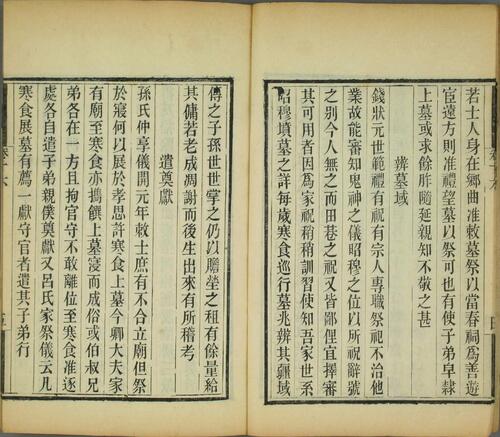 若士人身在鄉曲准敕墓祭以當春祠爲善遊
宦遠方則准禮望墓以祭可也有使子弟皁隸
上墓或求餘胙隨延親知不敬之甚
辨墓域
錢狀元世範禮有祝有宗人專職祭祀不治他
業故能審知鬼神之儀昭穆之位以所祝辭號
之别今人無之而田巷之祝又皆鄙俚宜擇審
之其可用者因爲家祝稍稍訓習使知吾家世系
昭穆墳墓之詳每歲寒食巡行墓兆辨其疆域
傳之子孫世世掌之仍以贍塋之租有餘量給
其傭若老成凋謝而後生出來有所稽考
遣奠獻
孫氏仲享儀開元年敕士庶有不合立廟但祭
於寢何以展於孝思許寒食上墓今卿大夫家
有廟至寒食亦擕饌上墓寖而成俗或伯叔兄
弟各在一方且拘官守不敢離位至寒食准逐
處各自遣子弟親僕奠獻又呂氏家祭儀云凡
寒食展墓有薦一獻守官者遣其子弟行